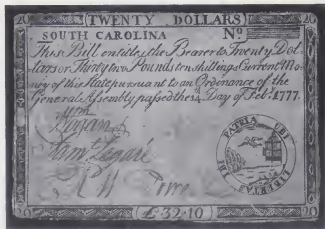 20 TWENTY DOLLARS 20
SOUTH CAROLINA Nº
This Bill entitles the Bearer to Twenty Dol-
lars or Thirty two Pounds ten shillings Current Mo-
ney of this State pursuant to an Ordinance of the
General Assembly passed the Day of Feb.ʸ 1777.
Logan
Sam.ˡ Legaré
PATRIA ET LIBERTAS
20 £.32.10 20